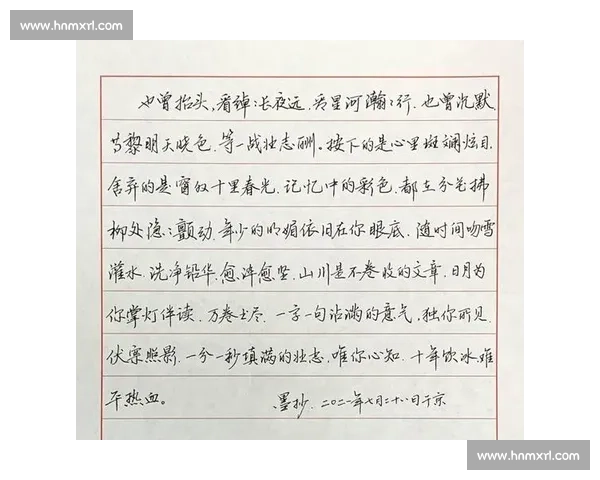 www.hnmxrl.com
也曾抬头,看绰绰长夜远,看星河瀚瀚行,也曾沉默
等黎明天晓色,等一战壮志酬。按下的是心里斑斓炫目,
舍弃的是窗以十里春光,记忆中的彩色,都在分花拂
柳处隐隐颤动,年少的明媚依旧在你眼底,随时间吻雪
淮水,洗净铅华,愈淬愈坚,山川是不卷收的文章,日月为
你掌灯伴读,万卷书尽,一字一句沾满的意气,独你所见,
伏案照影,一分一秒填满的壮志,唯你心知,十年饮冰,难
干热血。 墨抄,二〇二一年七月二十八日于京
www.hnmxrl.com